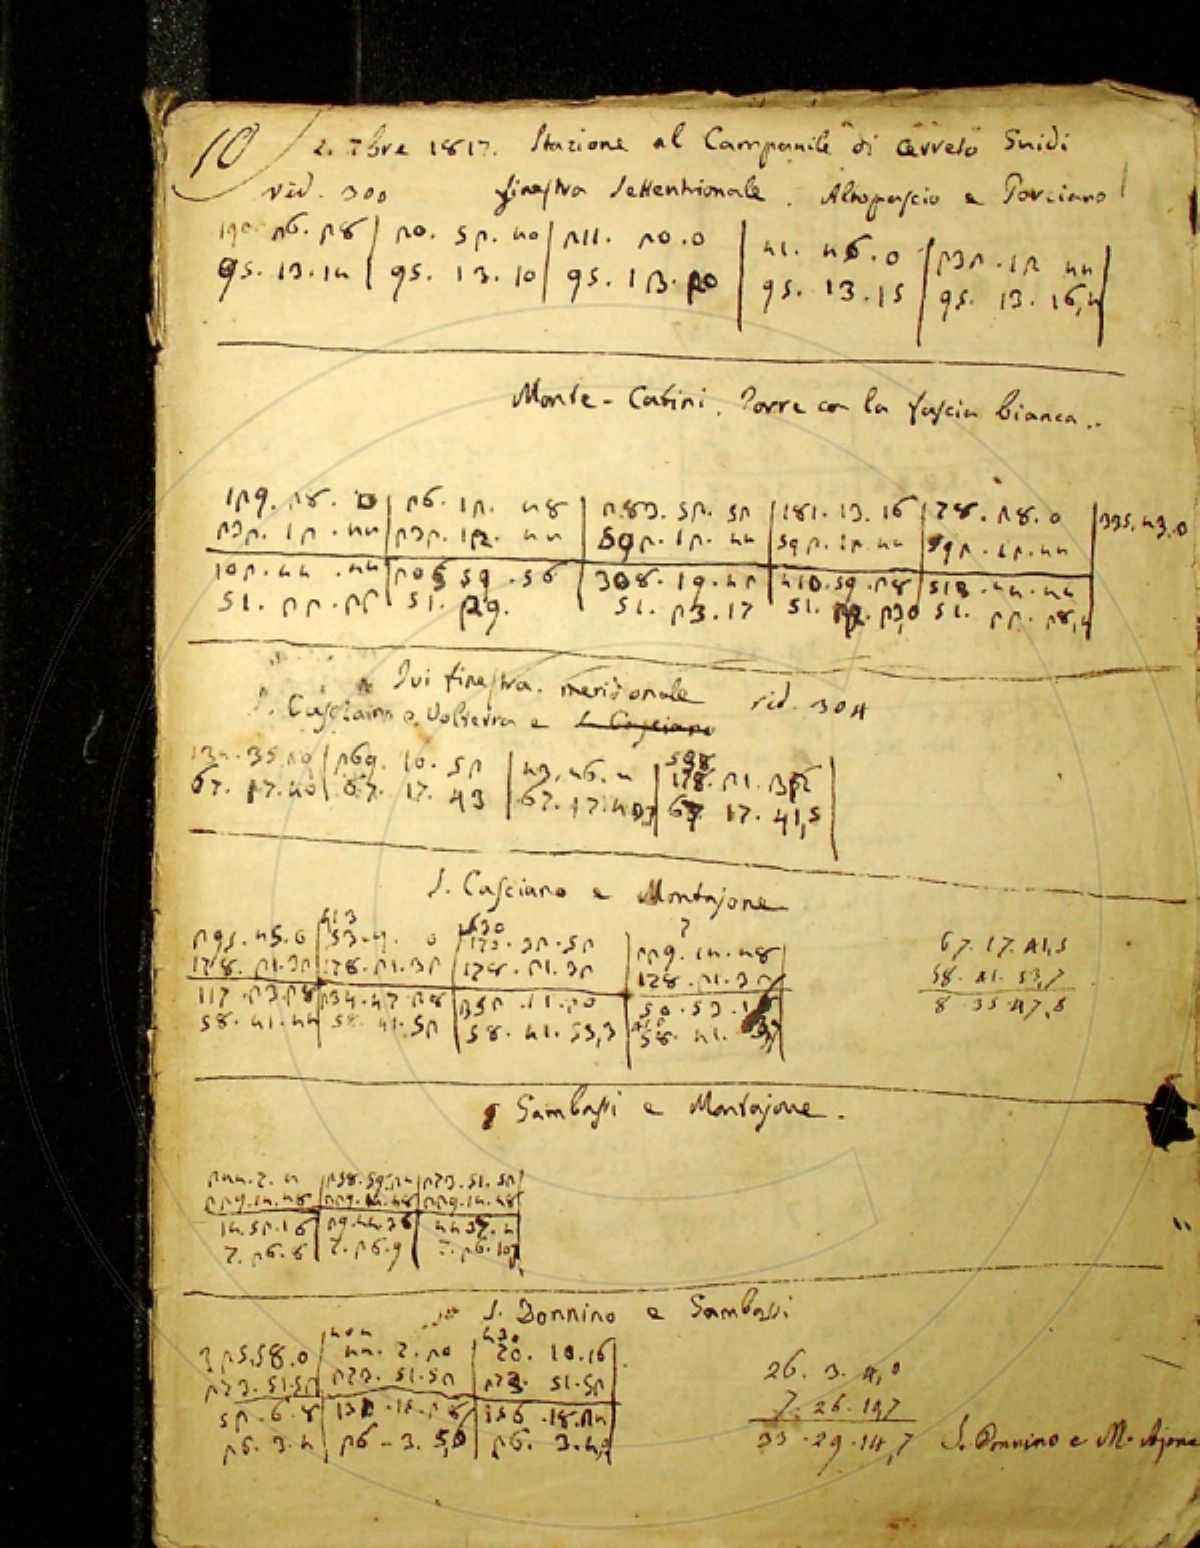 10 2. 7bre 1817. Stazione al Campanile di Cerreto Guidi
rid. 300 finestra settentrionale. Altopascio e Porciano
190. 26. 28 | 20. 52. 40 | 211. 20. 0 | 41. 46. 0 | 232. 12 44
95. 13. 14 | 95. 13. 10 | 95. 13. 20 | 95. 13. 15 | 95. 13. 16,4
Monte-Catini. Torre con la fascia bianca..
129. 28. 0 | 26. 12. 48 | 283. 52. 52 | 181. 13. 16 | 78. 28. 0 | 335. 43. 0
232. 12. 44 | 232. 12. 44 | 592. 12. 44 | 592. 12. 44 | 592. 12. 44
102. 44. 44 | 205 59. 56 | 308. 19. 42 | 410. 59. 28 | 513. 44. 44
51. 22. 22 | 51. 29. | 51. 23. 17 | 51. 22. 23,0 | 51. 22. 28,4
Ivi finestra. meridionale rid. 304
S. Casciano e Volterra e S. Casciano
538
134. 35. 20 | 269. 10. 52 | 43. 46. 4 | 178. 21. 32
67. 17. 40 | 67. 17. 43 | 67. 17. 40,7 | 67. 17. 41,5
S. Casciano e Montajone
413 530 ?
295. 45. 0 | 53. 9. 0 | 170. 32. 52 | 229. 14. 48 67. 17. 41,5
178. 21. 32 | 178. 21. 32 | 178. 21. 32 | 178. 21. 32 58. 41. 53,7
117. 23. 28 | 234. 47. 28 | 352. 11. 20 | 50. 53. 16 8. 35. 47,8
58. 41. 44 | 58. 41. 52 | 58. 41. 53,3 | 58. 41. 53,7
Gambassi e Montajone.
244. 7. 4 | 258. 59. 24 | 273. 51. 52
229. 14. 48 | 229. 14. 48 | 229. 14. 48
14. 52. 16 | 29. 44. 36 | 44 37. 4
7. 26. 8 | 7. 26. 9 | 7. 26. 10,7
S. Donnino e Gambassi
404 430
325. 58. 0 | 44. 7. 20 | 70. 10. 16 26. 3. 4,0
273. 51. 52 | 273. 51. 52 | 273. 51. 52 7. 26. 10,7
52. 6. 8 | 130. 15. 28 | 156. 18. 24 33. 29. 14,7 S. Donnino e M. Ajone
26. 3. 4 | 26 - 3. 5,0 | 26. 3. 4,0